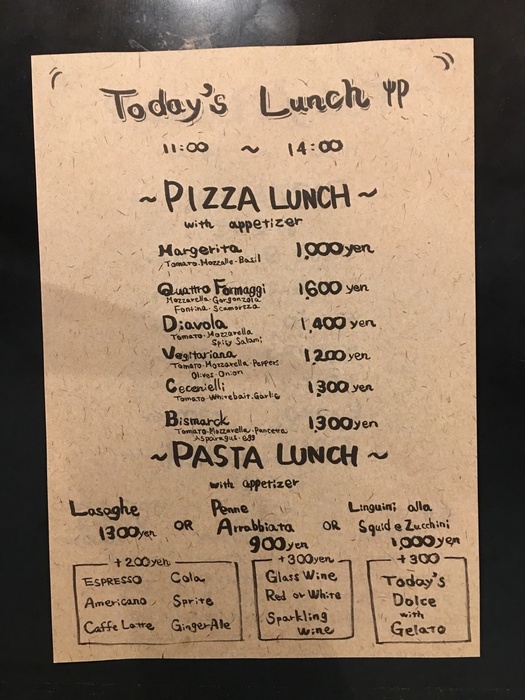 Today's Lunch
11:00 ~ 14:00
~ PIZZA LUNCH ~
with appetizer
Margerita 1,000yen
Tomato・Mozzalle・Basil
Quattro Formaggi 1,600 yen
Mozzarella・Gorgonzola
Fontina・Scamorzza
Diavola 1,400 yen
Tomato・Mozzarella
Spicy Salami
Vegitariana 1,200 yen
Tomato・Mozzarella・Peppers
Olives・Onion
Cecenielli 1,300 yen
Tomato・Whitebait・Garlic
Bismarck 1,300yen
Tomato・Mozzarella・Pancetta
Asparagus・egg
~ PASTA LUNCH ~
with appetizer
Lasaghe
1300yen
OR
Penne
Arrabbiata
900yen
OR
Linguini alla
Squid e Zucchini
1,000yen
+200yen
ESPRESSO Cola
Americano Sprite
Caffe Latte GingerAle
+300yen
Glass Wine
Red or White
Sparkling
Wine
+300
Today's
Dolce
with
Gelato